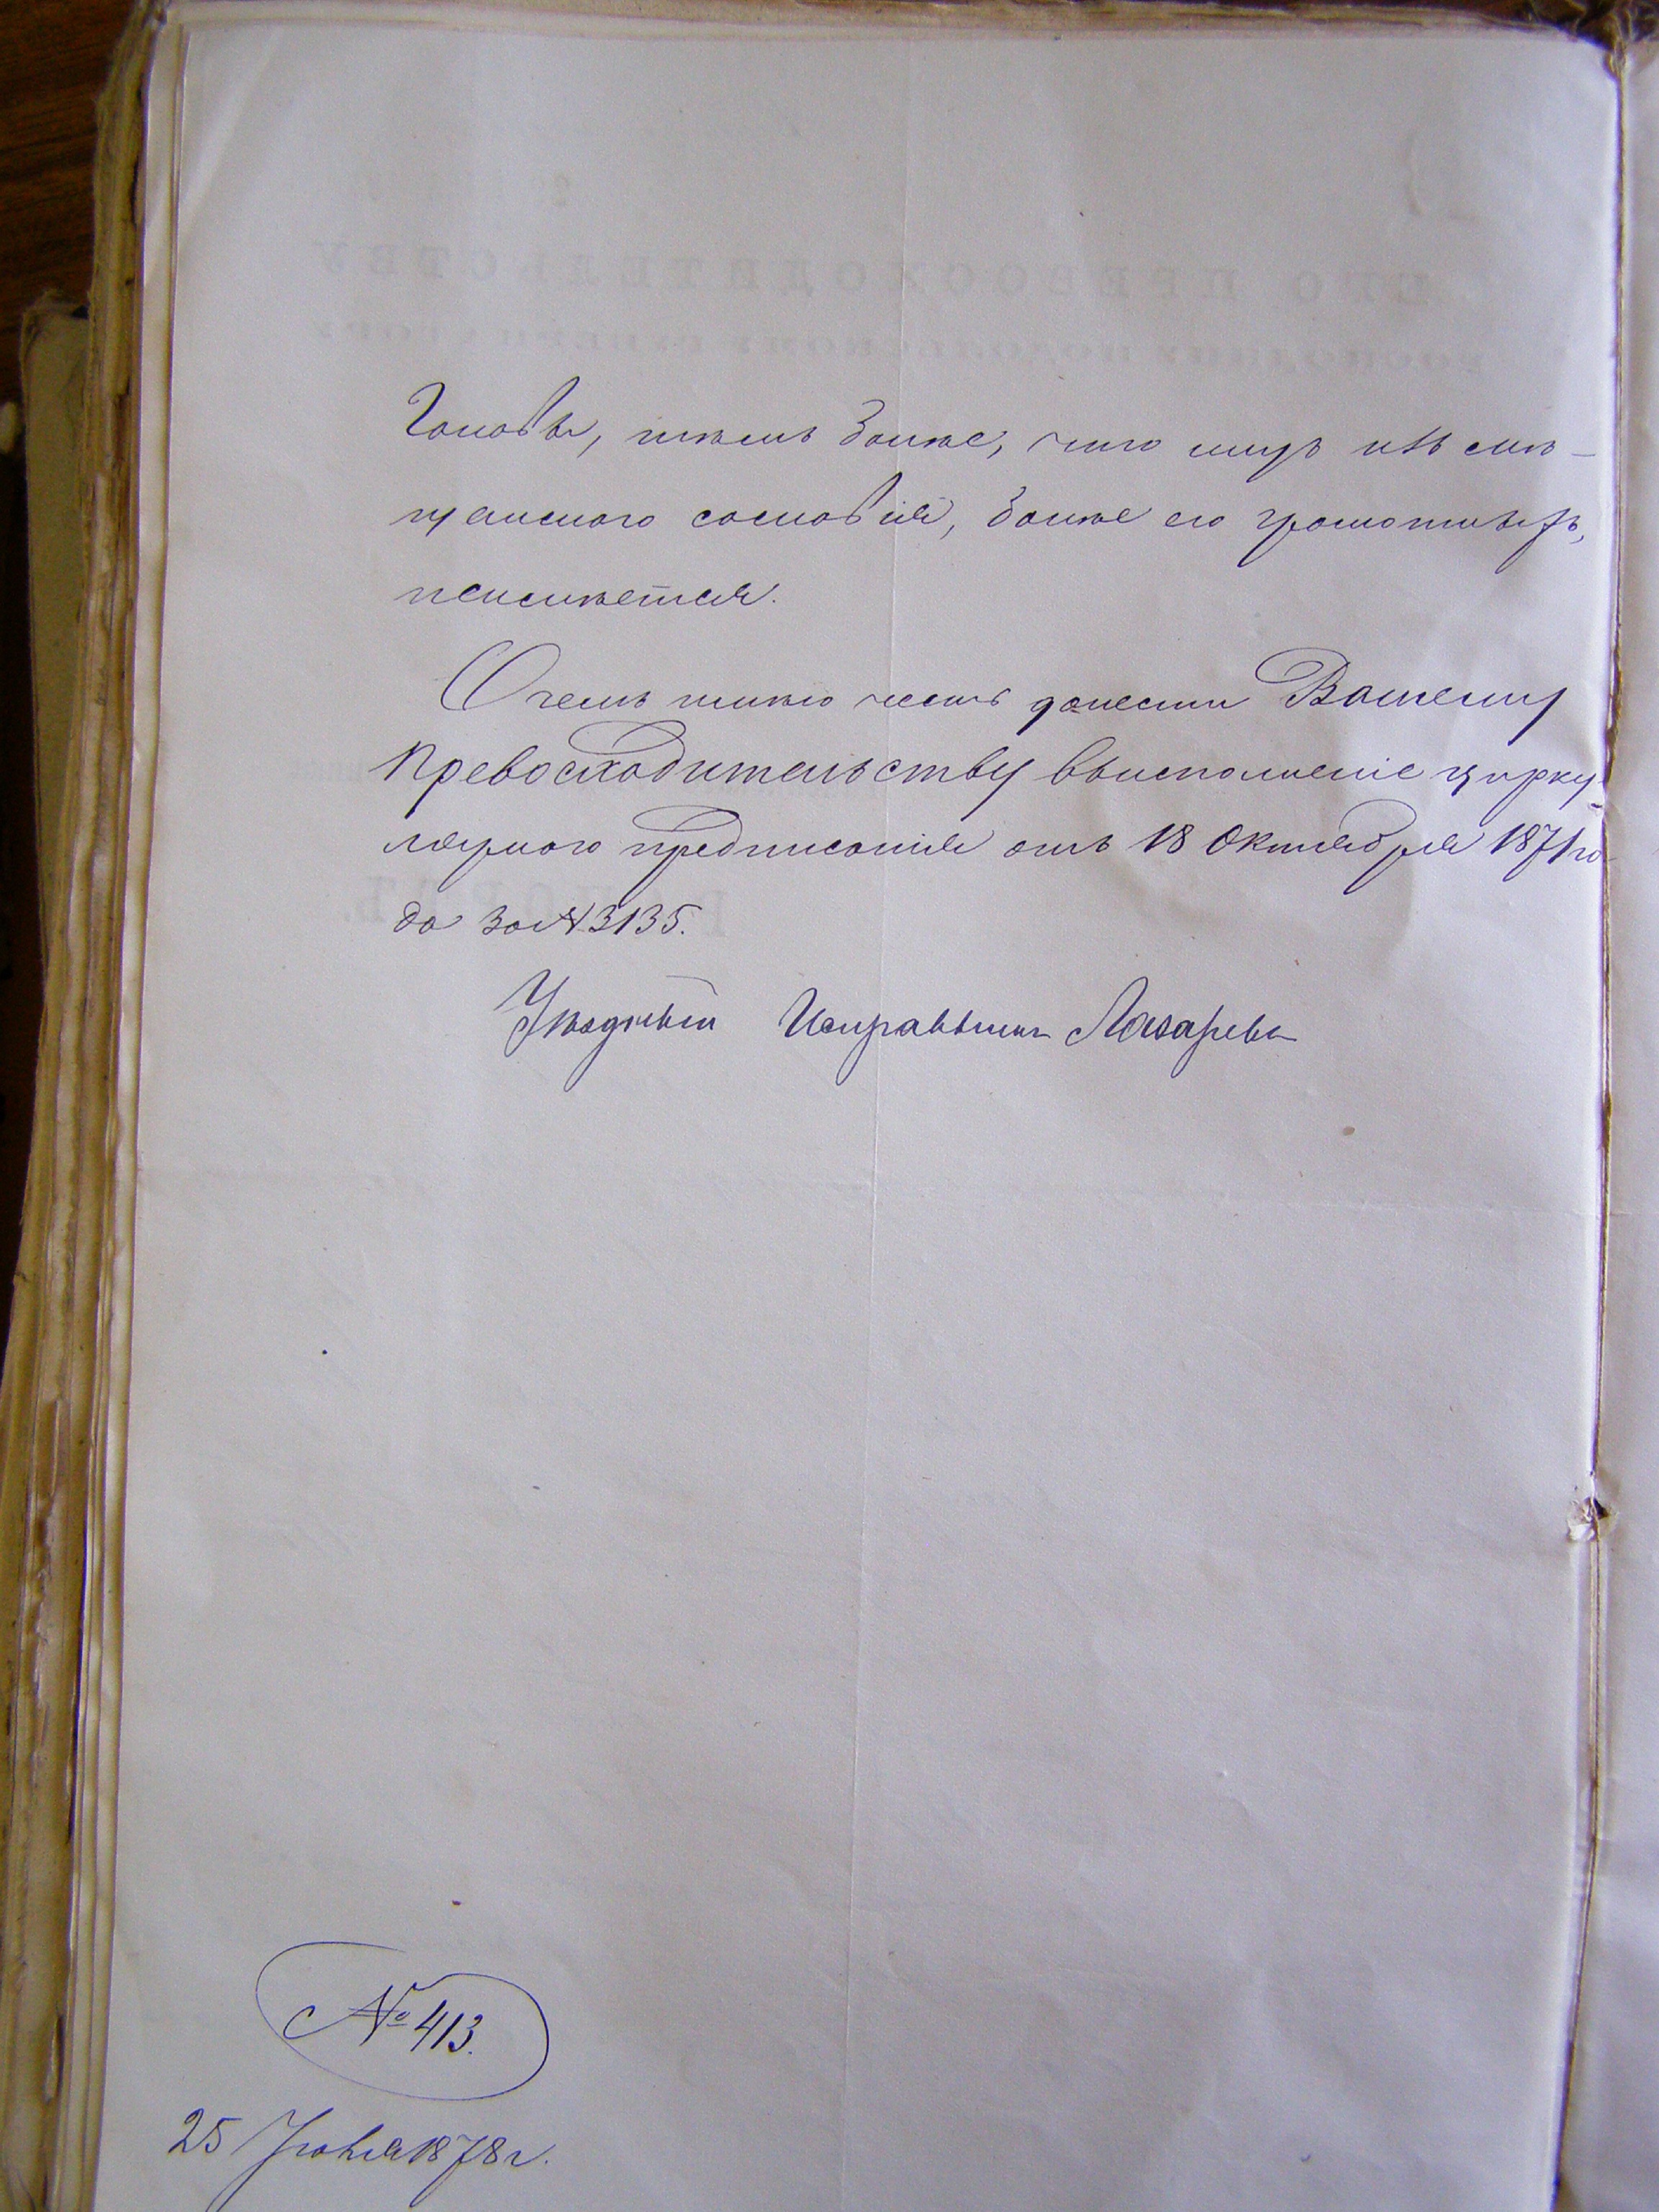 Головы, тѣмъ болѣе, что лицъ изъ мѣ-
щанскаго сословія, болѣе его грамотныхъ,
неимѣется.
О чемъ имѣю честь донести Вашему
Превосходительству въисполненіе цирку-
лярнаго предписанія отъ 18 Октября 1871 го-
да за № 3135.
Уѣздный Исправникъ Лазаревъ
№ 413.
25 Іюня 1878 г.